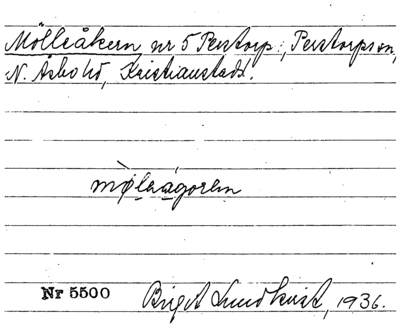 Mölleåkern nr 5 Perstorp, Perstorps sn,
N. Åsbo hd, Kristianstads l.
mø̀lɛrágorɛn
Nr 5500
Birgit Lundkvist, 1936.